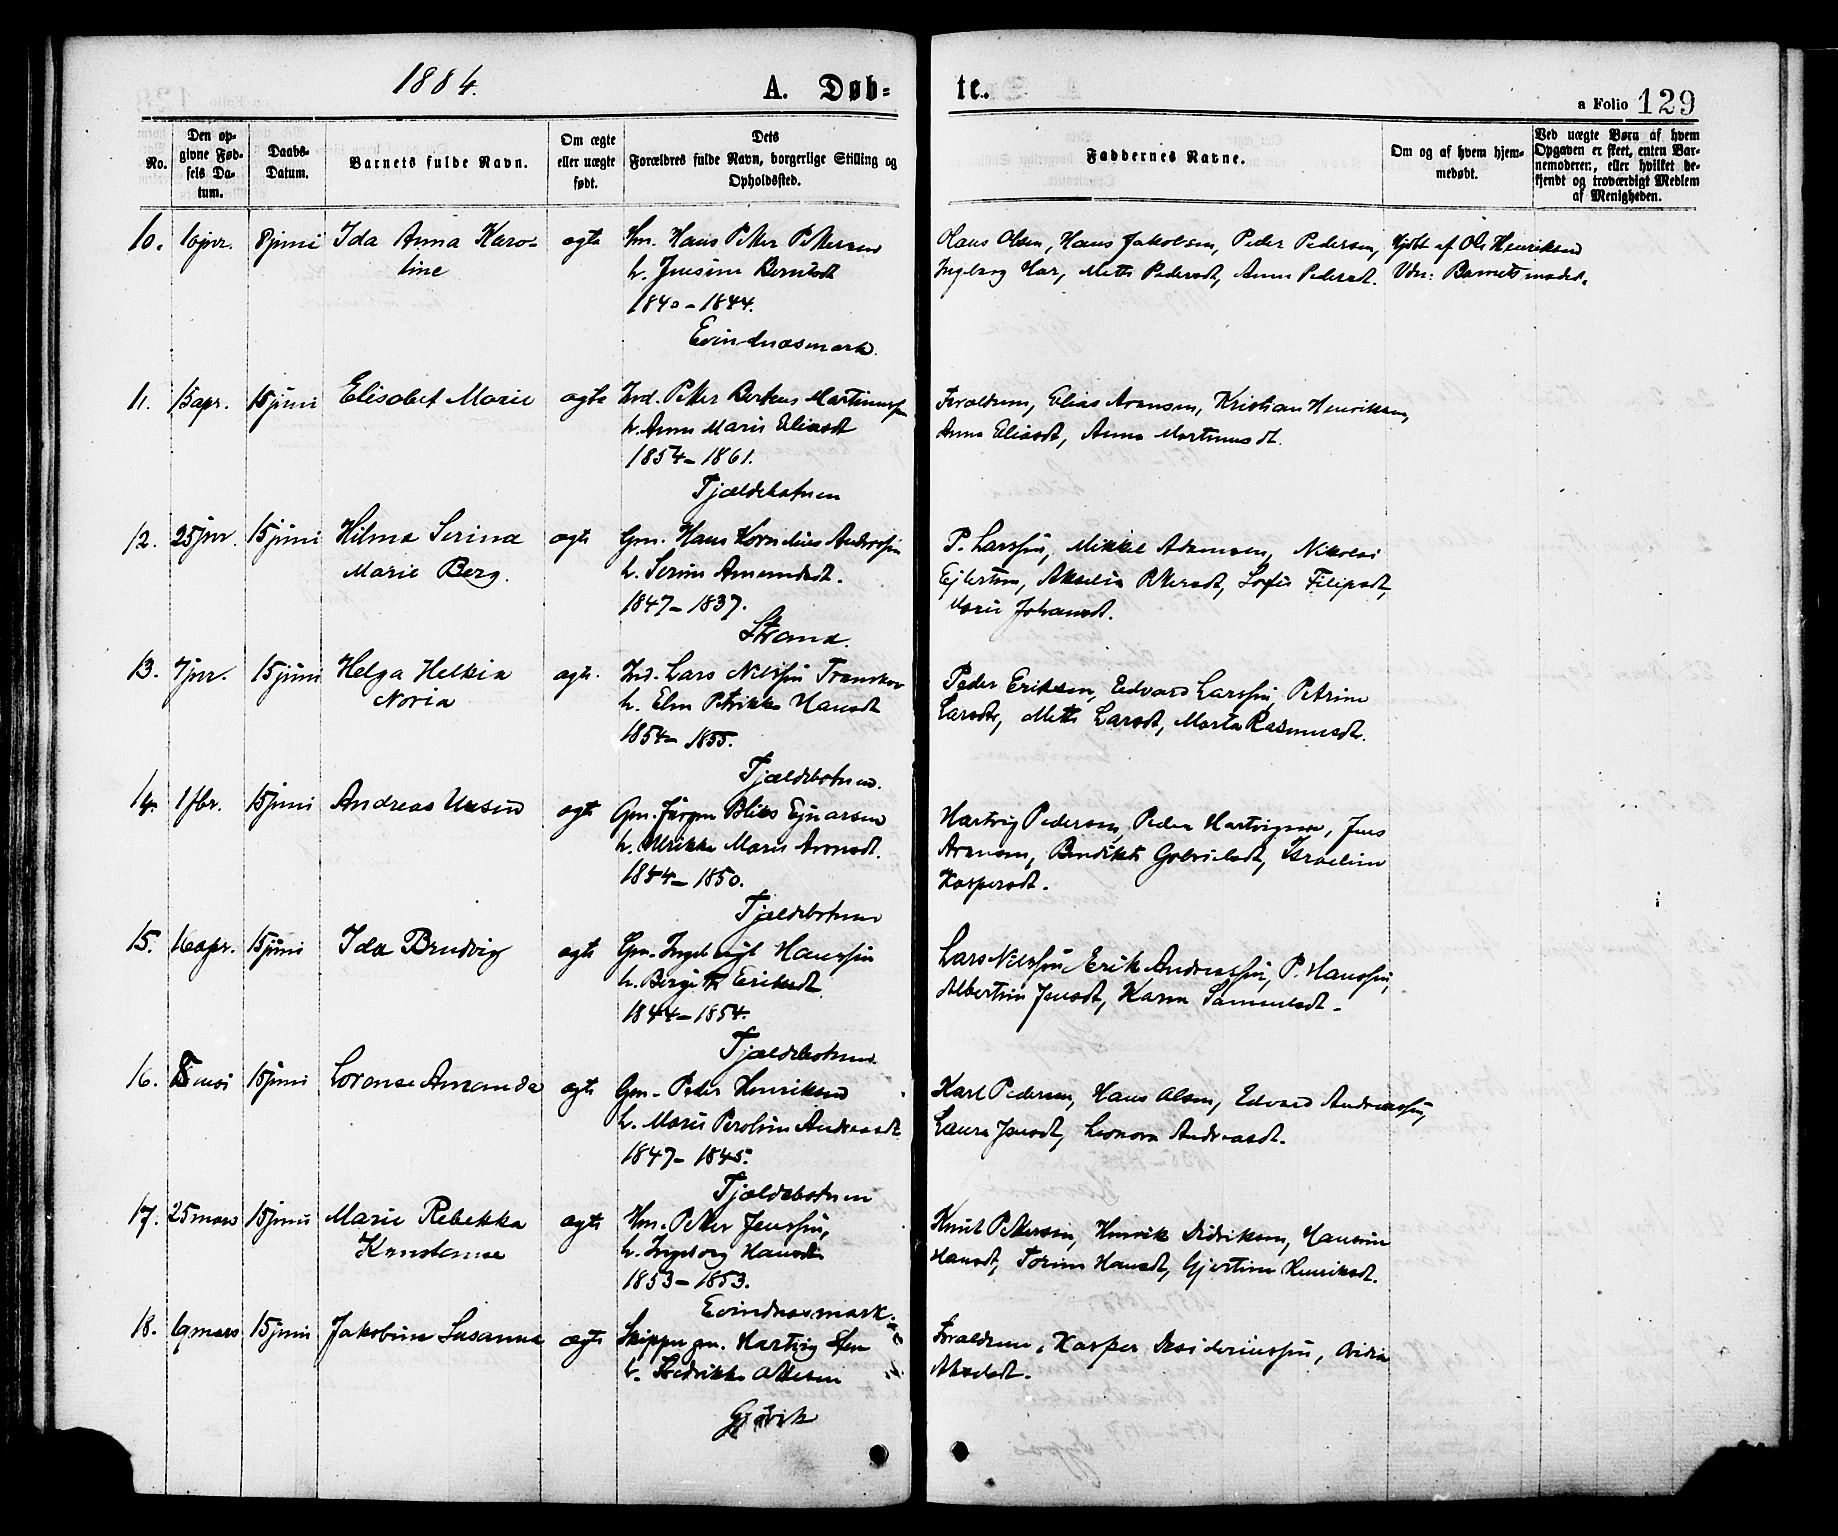 1884.
A. Døb=
te.
a Folio 129
No.
Den op-
givne Fød-
sels Da-
tum.
Daabs-
Datum.
Barnets fulde Navn.
Om ægte
eller uægte
født.
Dets
Forældres fulde Navn, borgerlige Stilling og
Opholdssted.
Faddernes Navne.
Om og af hvem hjem-
medøbt.
Ved uægte Børn af hvem
Opgaven er skeet, enten Bar-
nemoderen, eller hvilket be-
kjendt og troværdigt Medlem
af Menigheden.
10. 10 jnr. 8 juni Ida Anna Karo- ægte Hm. Hans Petter Pettersen
line h. Jensine Berntsdt
1840-1844.
Evindnæsmark.
Hans Olsen, Hans Jakobsen, Peder Pedersen, Hjdbt af Ole Henriksen
Ingeborg Har, Mette Pedersdt, Anne Pedersdt. Vdn: Barnets moder.
11. 15 apr. 15 juni Elisabet Marie ægte Ind. Petter Berteus Martinussen
h. Anne Marie Eliasdt
1854-1861.
Tjældebotnen
Forældrene, Elias Arensen, Kristian Henriksen,
Anne Eliasdt, Anna Martinusdt.
12. 25 jnr. 15 juni Hilma Serina ægte Gm. Hans Kornelius Anderssen
Marie Berg. h. Serine Amundsdt.
1847-1837.
Strand.
P. Larssen, Mikkel Adamsen, Nikolai
Ejlertsen, Petersdt, Sofie Filipsdt,
Marie Johansdt.
13. 7 jnr. 15 juni Helga Helkia ægte. Ind. Lars Nilssen
Noria h. Elen Petrikke Hansdt
1854-1855.
Tjældebotnen.
Peder Eriksen, Edvard Larssen, Petrine
Larsdt, Mette Larsdt, Marta Rasmusdt.
14. 1 fbr. 15 juni Andreas ægte Gm. Jørgen Blix Ejnarsen
h. Ulrikke Marie Arensdt.
1844-1850.
Tjældebotnen
Hartvig Pedersen, Peder Hartvigsen, Jens
Arensen, Bendikte Gabrielsdt, Israeline
Kaspersdt.
15. 16 apr. 15 juni Ida Brudvig ægte Gm. Ingebrigt Hanssen
h. Bergitte Eriksdt
1844-1854.
Tjældebotnen
Lars Nilssen, Erik Andreassen, P. Hanssen,
Albertine Jensdt, Karen Samuelsdt.
16. 8 mai 15 juni Lorense Amanda ægte Gm. Peder Henriksen
h. Marie Peroline Andreasdt
1847-1845.
Tjældebotnen
Karl Pedersen, Hans Olsen, Edvard Andreassen,
Laura Jensdt, Leonora Andreasdt.
17. 25 mars 15 juni Marie Rebekka ægte Hm. Petter Jenssen,
Konstanse h. Ingeborg Hansdt
1853-1853.
Evindnæsmark.
Knut Pettersen, Henrik Didriksen, Hansine
Hansdt, Torine Hansdt, Gjertine Henriksdt.
18. 19 mars 15 juni Jakobine Susanna ægte Skipper gm. Hartvig
h. Fredrikke Ottesen
Gjøvik
Forældrene, Kasper Desideriussen,
Akseldt.